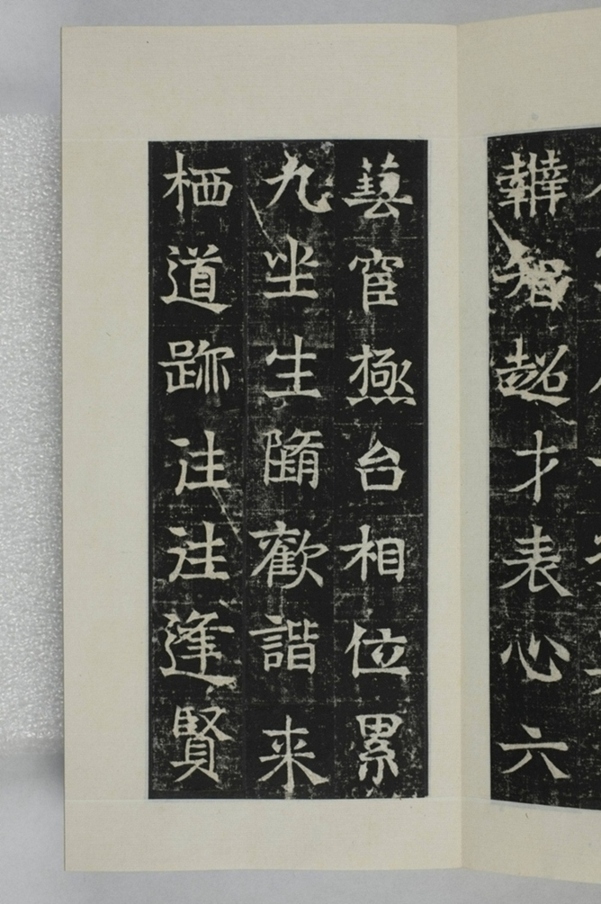 韡智超才表心六
藝宦極台相位累
九坐生隋歡諧来
栖道跡往往逢賢